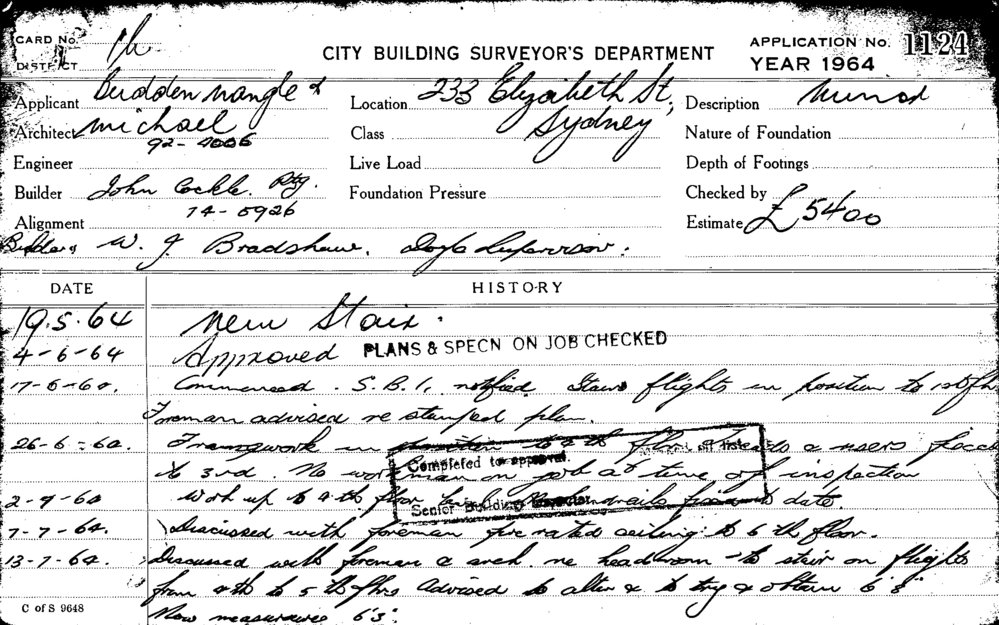 CARD No. 1h
DISTRICT
CITY BUILDING SURVEYOR'S DEPARTMENT
APPLICATION No. 1124
YEAR 1964
Applicant Budden nangle &
Architect michael
92-4006
Engineer
Builder John Cockle. Pty.
74-5926
Alignment
Location 233 Elizabeth St,
Sydney
Class
Live Load
Foundation Pressure
Description
Nature of Foundation
Depth of Footings
Checked by
Estimate £ 5400
Builders W. J. Bradshaw. Supervisor.
DATE HISTORY
19.5.64 New Stair.
4-6-64 Approved PLANS & SPECN ON JOB CHECKED
17-6-64. Commenced. S.B.I. notified. Stairs flights in position to 1st flr
Foreman advised re stamped plan.
26-6-64. Framework in position to 4th floor treads & risers
to 3rd. No workman on job at time of inspection
Completed to approval.
Senior Building Inspector
2-7-64 Work up to 4th floor handrails to date.
7-7-64. Discussed with foreman fire rated ceiling to 6th floor.
13-7-64. Discussed with foreman & arch. re headroom to stair on flights
from 4th to 5th flrs advised to alter & to try & obtain 6'8"
Now measures 6'3"
C of S 9648